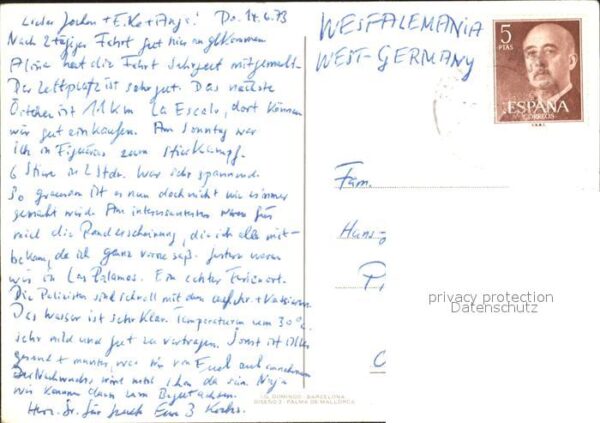 Lieber Jochen + Elke + Anja! Do. 14.6.73
Nach 2tägiger Fahrt gut hier angekommen
hat die Fahrt sehr gut mitgemacht.
Der Zeltplatz ist sehr gut. Das nächste
Örtchen ist 11 km La Escala, dort können
wir gut einkaufen. Am Sonntag war
ich in Figueras zum Stierkampf.
6 Stiere in 2 Stdn. War sehr spannend.
So grausam ist es nun doch nicht wie es immer
gemacht wird. Am interessantesten waren für
mich die Randerscheinung, die ich alle mit-
bekam, da ich ganz vorne saß. Gestern waren
wir in Las Palamos. Ein echter Ferienort.
Die Polizisten sind schnell mit dem + Kassieren.
Das Wasser ist sehr klar. Temperaturen um 30°C
sehr mild und gut zu vertragen. Sonst ist alles
gesund + munter, was wir von Euch auch annehmen
Der Nachwuchs wird wohl schon da sein. Na ja
wir kommen dann zum Begutachten.
Herzl. Gr. für Euch Eure 3
WESFALEMANIA
WEST-GERMANY
5
PTAS
ESPAÑA
CORREOS
Fam.
Hans-
privacy protection
Datenschutz
I.G. DOMINGO - BARCELONA
DISEÑO 3 - PALMA DE MALLORCA